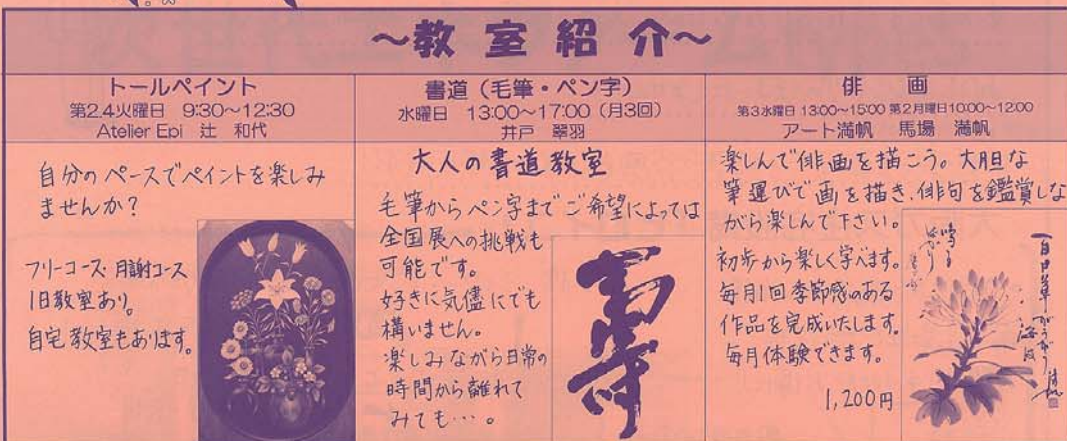 ～教室紹介～
トールペイント
第2.4火曜日 9:30～12:30
Atelier Epi 辻 和代
自分のペースでペイントを楽しみ
ませんか?
フリーコース・月謝コース
1日教室あり。
自宅教室もあります。
書道（毛筆・ペン字）
水曜日 13:00～17:00（月3回）
井戸 翠羽
大人の書道教室
毛筆からペン字までご希望によっては
全国展への挑戦も
可能です。
好きに気儘にでも
構いません。
楽しみながら日常の
時間から離れて
みても…。
俳 画
第3水曜日 13:00～15:00 第2月曜日10:00～12:00
アート満帆 馬場 満帆
楽しんで俳画を描こう。大胆な
筆運びで画を描き、俳句を鑑賞しな
がら楽しんで下さい。
初歩から楽しく学べます。
毎月1回季節感のある
作品を完成いたします。
毎月体験できます。
1,200円